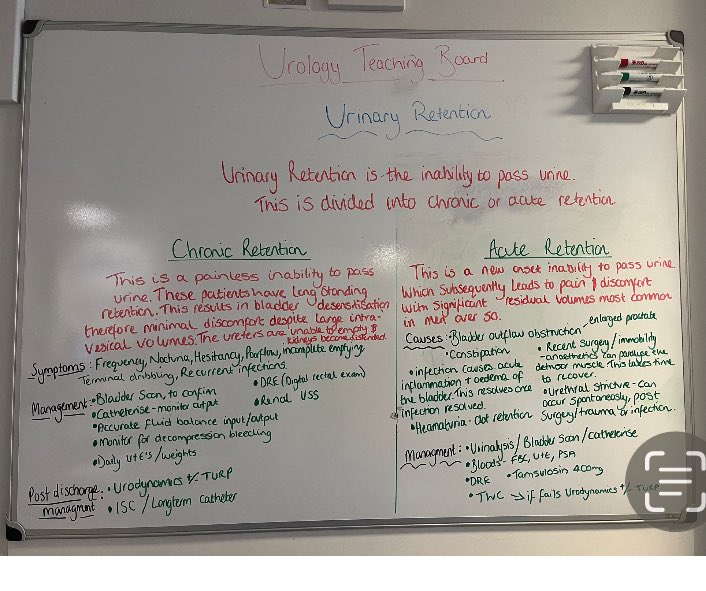 Urology Teaching Board
Urinary Retention
Urinary Retention is the inability to pass urine.
This is divided into chronic or acute retention
Chronic Retention
This is a painless inability to pass
urine. These patients have long standing
retention. This results in bladder desensitisation
therefore minimal discomfort despite large intra-
vesical volumes. The ureters are unable to empty &
kidneys become distended.
Symptoms: Frequency, Nocturia, Hesitancy, Poorflow, incomplete emptying
Terminal dribbling, Recurrent infections.
Management: •Bladder Scan, to confirm
•DRE (Digital rectal exam)
•Catheterise-monitor output
•Renal USS
•Accurate fluid balance input/output
•Monitor for decompression bleeding
•Daily U+E's/weights
Post discharge managment: •Urodynamics +/- TURP
•ISC / Longterm Catheter
Acute Retention
This is a new onset inability to pass urine.
Which Subsequently leads to pain & discomfort
with Significant residual volumes most common
in men over 50.
Causes: •Bladder outflow obstruction - enlarged prostate
•Constipation
•infection causes acute
inflammation + oedema of
the bladder. This resolves once
infection resolved.
•Heamaturia - Clot retention
•Recent Surgery / immobility
-anaesthetics can paralyse the
detrusor muscle. This takes time
to recover.
•Urethral stricture - can
occur spontaneously, post
Surgery/trauma or infection.
Managment: •Urinalysis / Bladder Scan / Catheterise
•Bloods - FBC, U+E, PSA
•DRE •Tamsulosin 400mg
•TWC → if fails Urodynamics +/- TURP